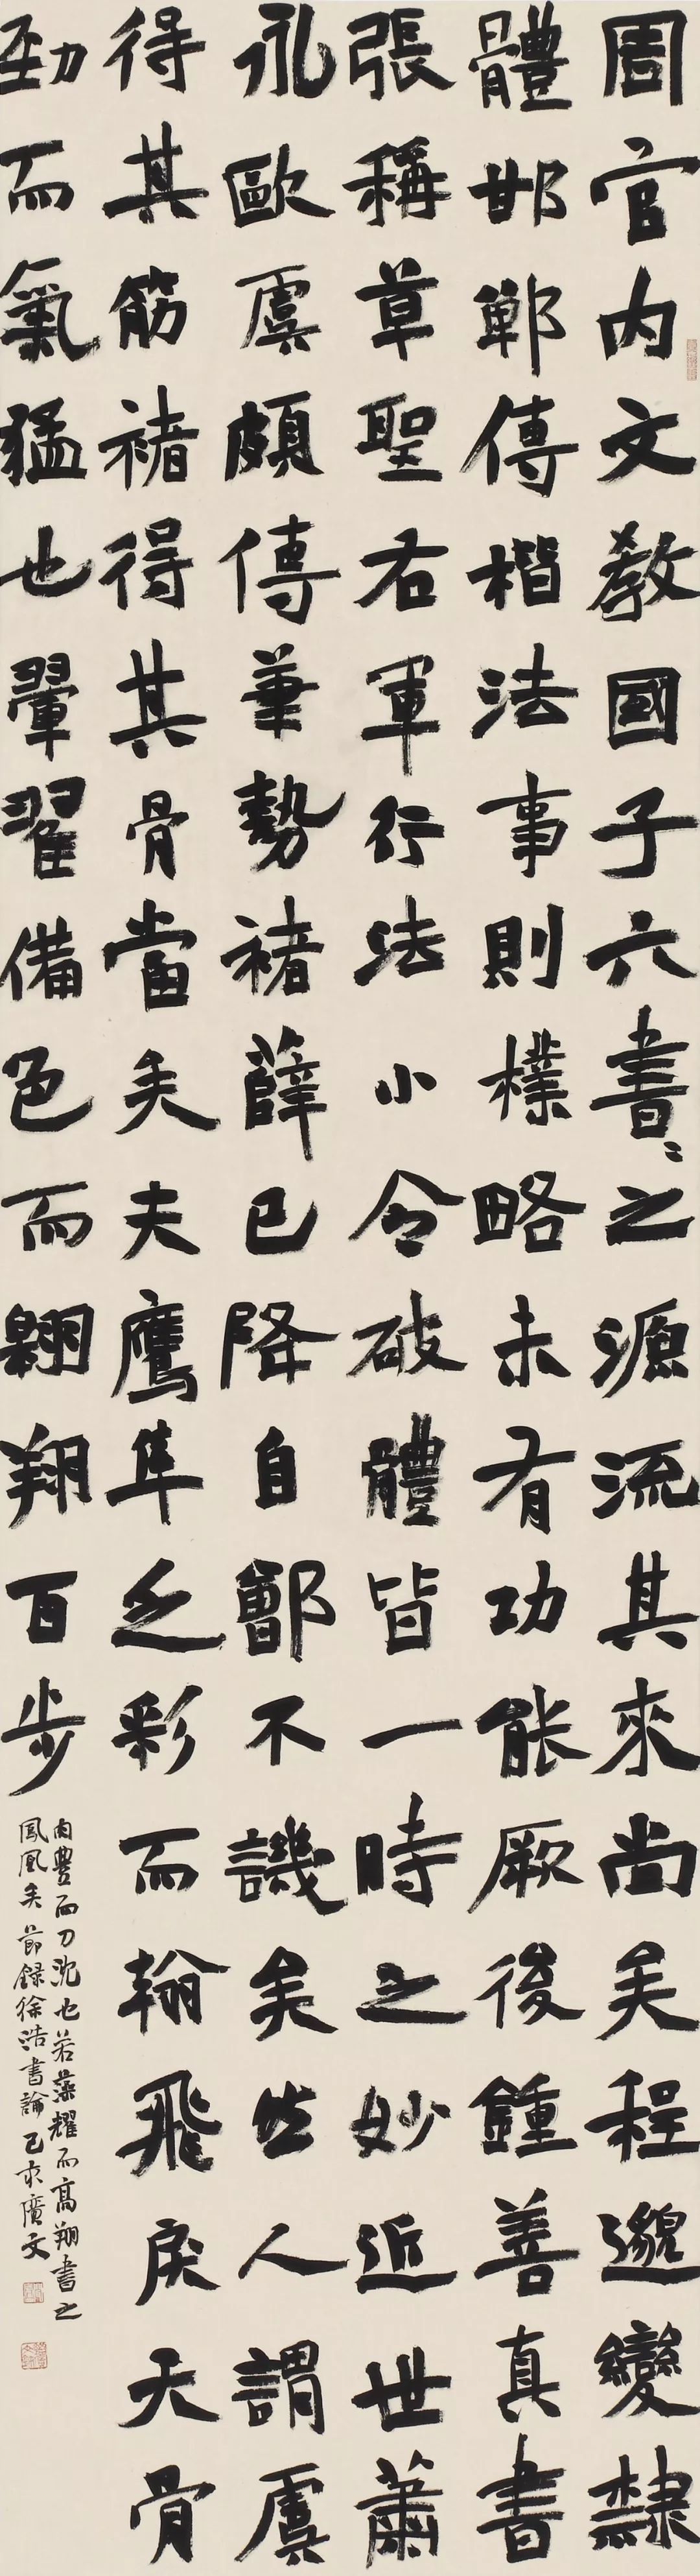 周官内文教國子六書〻之源流其來尚矣程邈變隸
體邯鄲傳楷法事則樸略未有功能厥後鍾善真書
張稱草聖右軍行法小令破體皆一時之妙近世蕭
永歐虞頗傳筆勢褚薛已降自鄶不譏矣世人謂虞
得其筋褚得其骨當矣夫鷹隼乏彩而翰飛戾天骨
勁而氣猛也翬翟備色而翱翔百步
肉豐而力沈也若藻耀而高翔書之
鳳凰矣節録徐浩書論己亥廣文